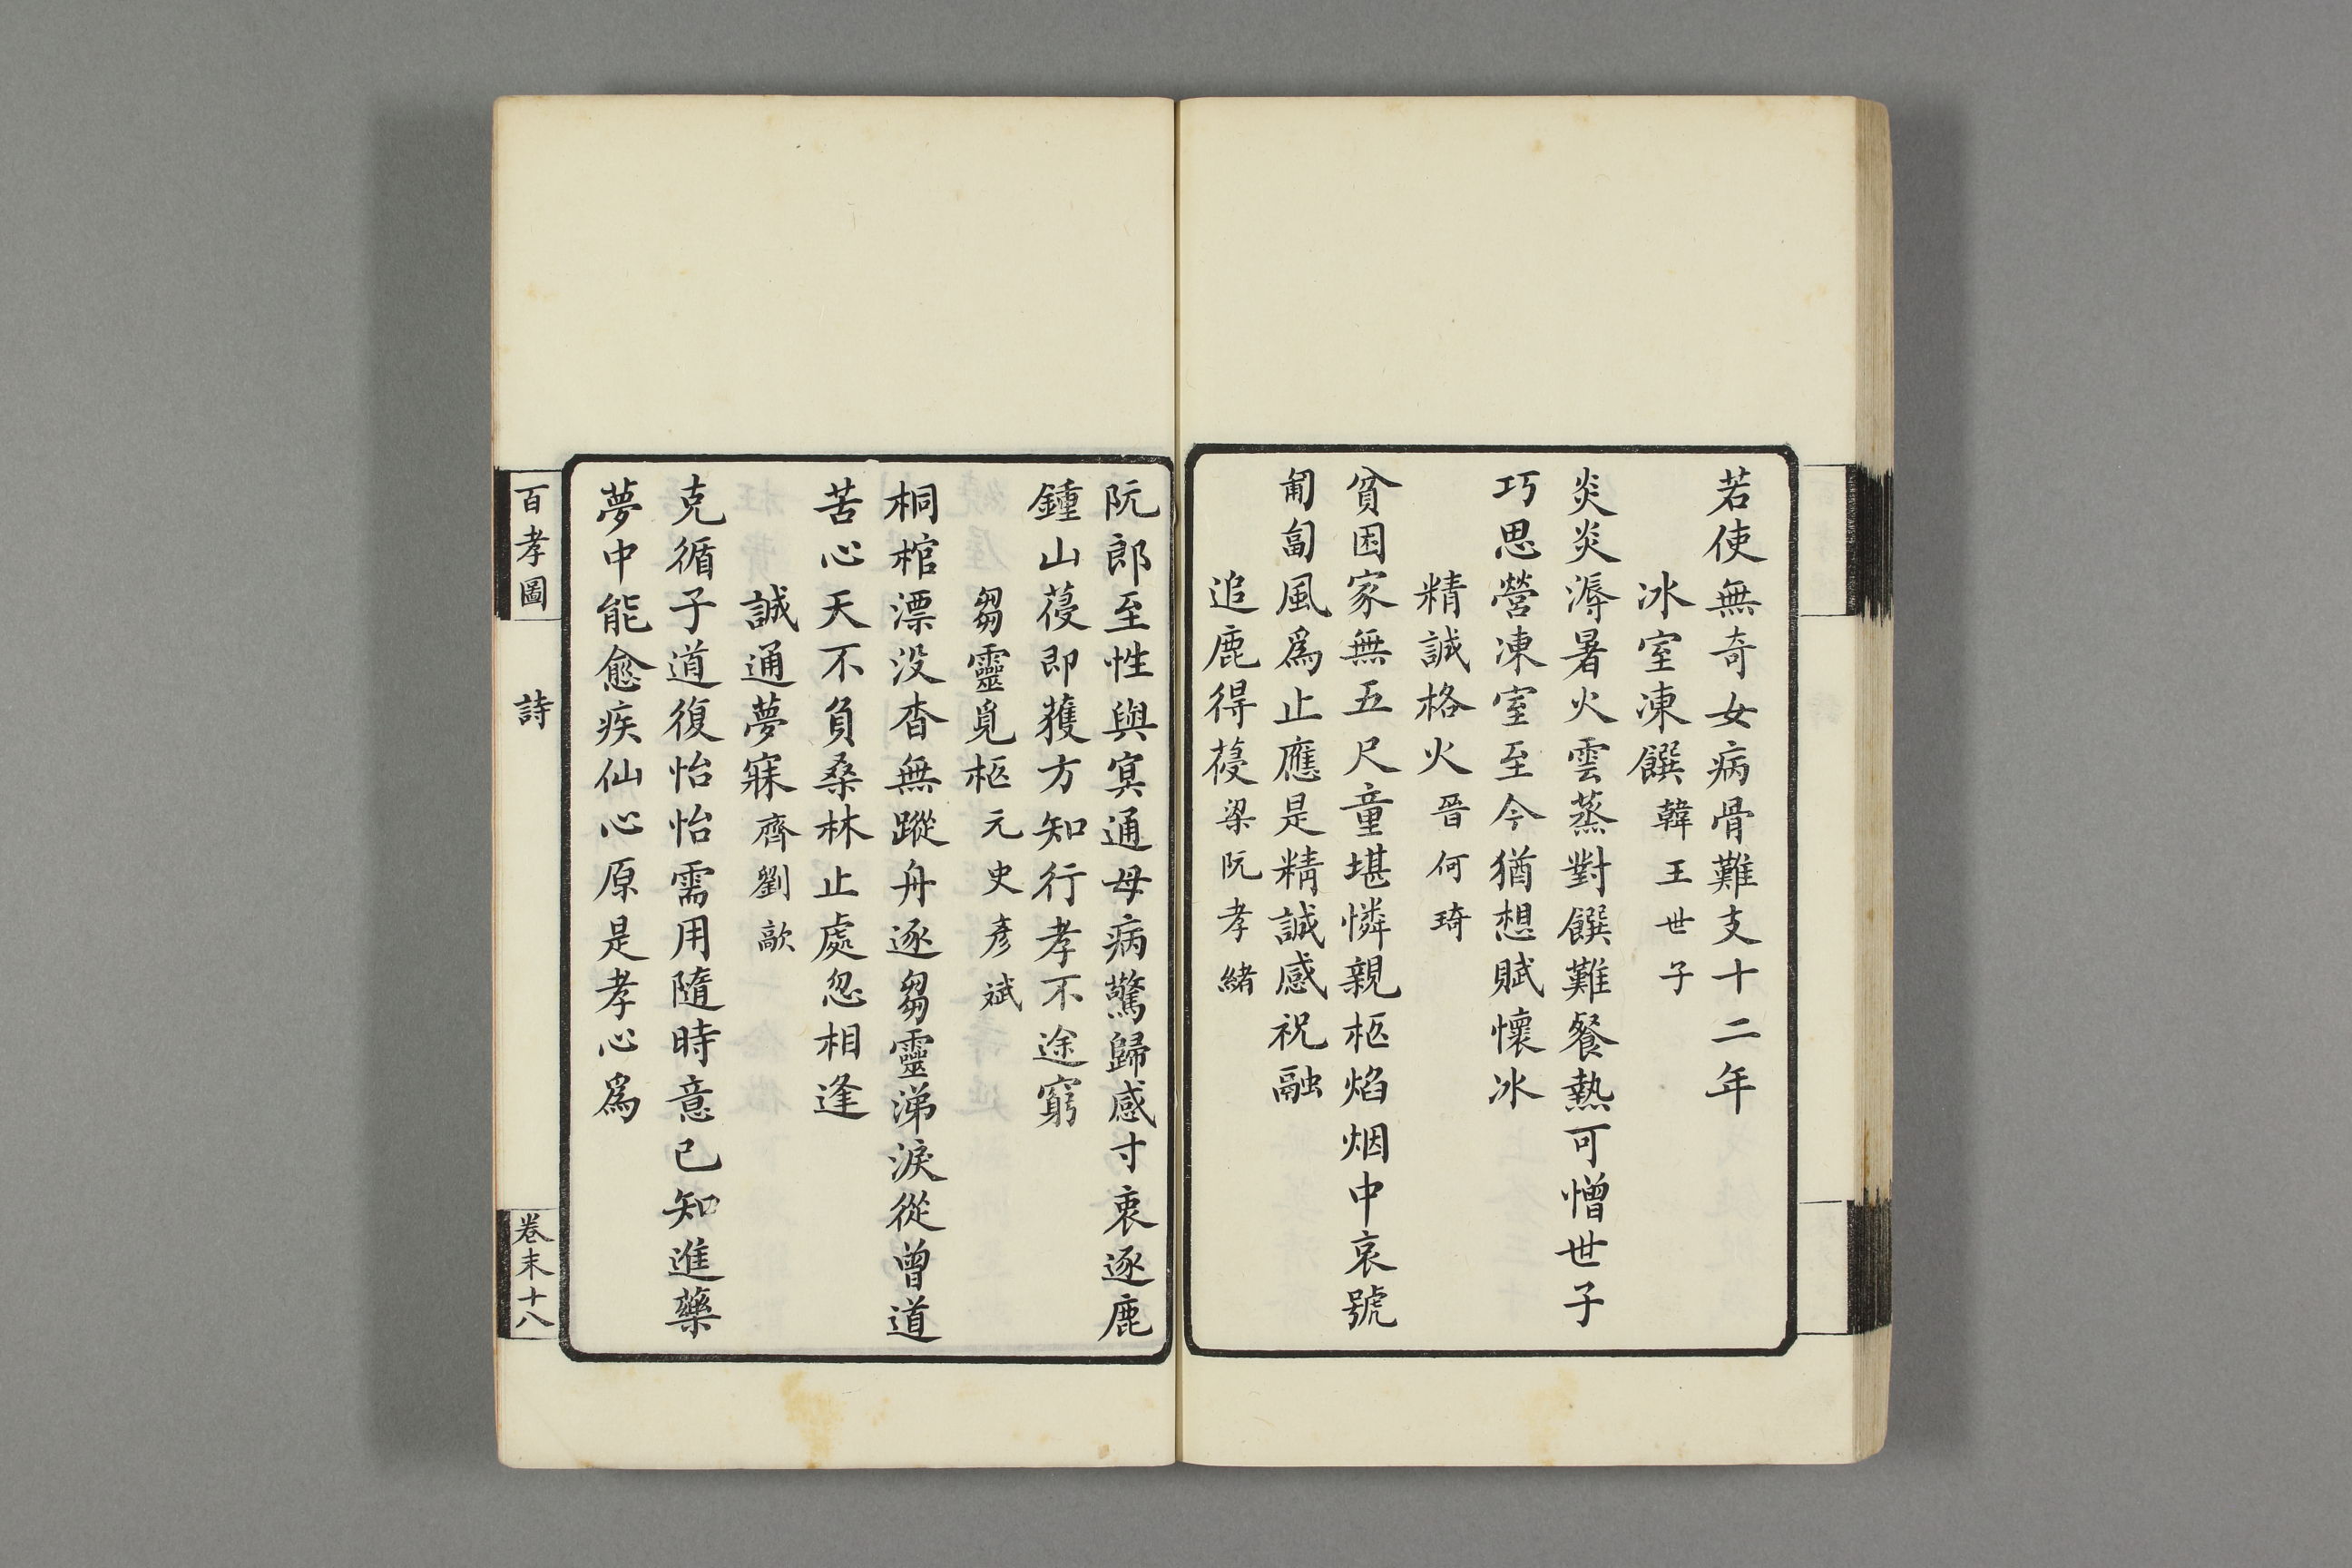 若使無奇女病骨難支十二年
冰室凍饌韓王世子
炎炎溽暑火雲蒸對饌難餐熱可憎世子
巧思營凍室至今猶想賦懷冰
精誠格火晉何琦
貧困家無五尺童堪憐親柩焰烟中哀號
匍匐風爲止應是精誠感祝融
追鹿得葠梁阮孝緒
阮郎至性與冥通母病驚歸感寸衷逐鹿
鍾山葠即獲方知行孝不途窮
芻靈覓柩元史彥斌
桐棺漂没杳無蹤舟逐芻靈涕淚從曾道
苦心天不負桑林止處忽相逢
誠通夢寐齊劉歊
克循子道復怡怡需用隨時意已知進藥
夢中能愈疾仙心原是孝心爲
百孝圖 詩 卷末十八